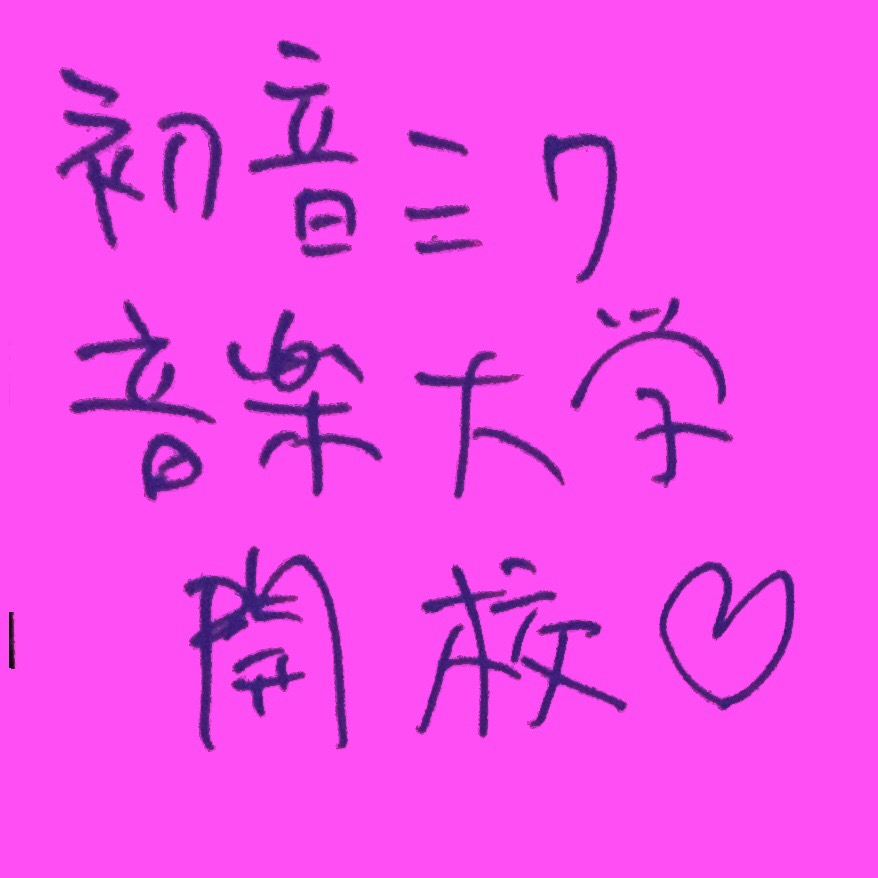 初音ミク
音楽大学
開校♡